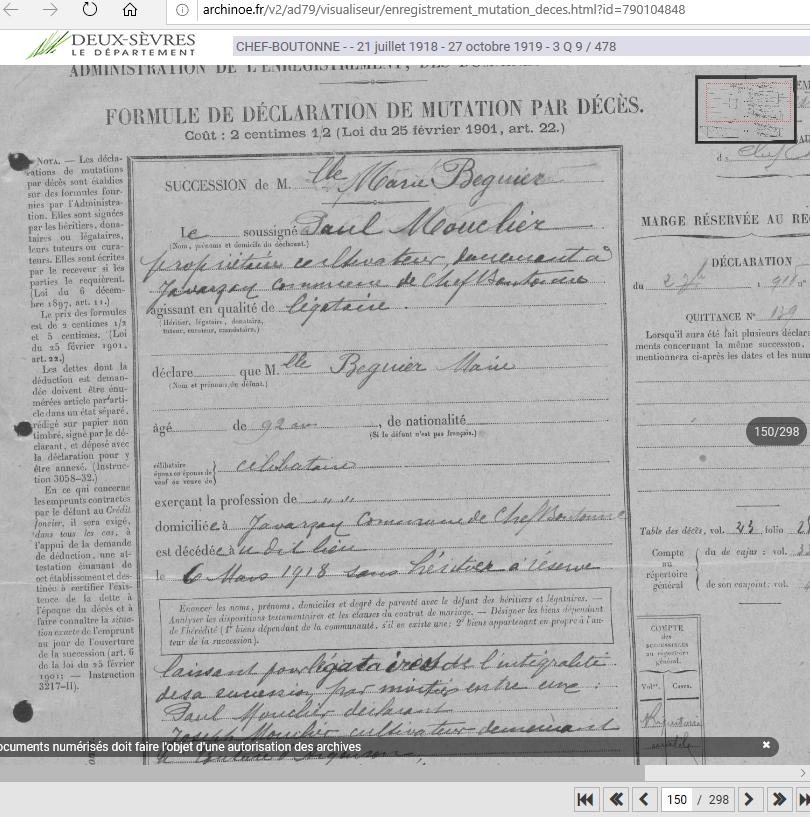 archinoe.fr/v2/ad79/visualiseur/enregistrement_mutation_deces.html?id=790104848
DEUX-SÈVRES
LE DÉPARTEMENT
CHEF-BOUTONNE - - 21 juillet 1918 - 27 octobre 1919 - 3 Q 9 / 478
ADMINISTRATION DE L'ENREGISTREMENT, DES
FORMULE DE DÉCLARATION DE MUTATION PAR DÉCÈS.
Coût : 2 centimes 1/2 (Loi du 25 février 1901, art. 22.)
NOTA. — Les décla-
rations de mutations
par décès sont établies
sur des formules four-
nies par l'Administra-
tion. Elles sont signées
par les héritiers, dona-
taires ou légataires,
leurs tuteurs ou cura-
teurs. Elles sont écrites
par le receveur si les
parties le requièrent.
(Loi du 6 décem-
bre 1897, art. 11.)
Le prix des formules
est de 2 centimes 1/2
et 5 centimes. (Loi
du 25 février 1901,
art. 22.)
Les dettes dont la
déduction est deman-
dée doivent être énu-
mérées article par arti-
cle dans un état séparé,
rédigé sur papier non
timbré, signé par le dé-
clarant, et déposé avec
la déclaration pour y
être annexé. (Instruc-
tion 3058-32.)
En ce qui concerne
les emprunts contractés
par le défunt au Crédit
foncier, il sera exigé,
dans tous les cas, à
l'appui de la demande
de déduction, une at-
testation émanant de
cet établissement et des-
tinée à certifier l'exis-
tence de la dette à
l'époque du décès et à
faire connaître la situa-
tion exacte de l'emprunt
au jour de l'ouverture
de la succession (art. 6
de la loi du 25 février
1901; — Instruction
3217-II).
SUCCESSION de M. lle Marie Beguier
Le soussigné Paul Mouclier
(Nom, prénoms et domicile du déclarant.)
propriétaire cultivateur demeurant à
Javarzay commune de Chef Boutonne
agissant en qualité de légataire.
(Héritier, légataire, donataire,
tuteur, curateur, mandataire.)
déclare que M. lle Beguier Marie
(Nom et prénoms du défunt.)
âgé de 92 ans, de nationalité
(Si le défunt n'est pas français.)
célibataire
époux ou épouse de
veuf ou veuve de
célibataire
exerçant la profession de " "
domiciliée à Javarzay Commune de Chef Boutonne
est décédée à u dit lieu
le 6 Mars 1918 sans héritier à réserve
Énoncer les noms, prénoms, domiciles et degré de parenté avec le défunt des héritiers et légataires. —
Analyser les dispositions testamentaires et les clauses du contrat de mariage. — Désigner les biens dépendant
de l'hérédité (1° biens dépendant de la communauté, s'il en existe une; 2° biens appartenant en propre à l'au-
teur de la succession).
laissant pour légataires de l'intégralité
de sa succession, par moitié entre eux :
Paul Mouclier déclarant
Joseph Mouclier cultivateur demeurant
MARGE RÉSERVÉE AU
DÉCLARATION
du 2 7bre 1918 n°
QUITTANCE N° 129
Lorsqu'il aura été fait plusieurs déclara
ments concernant la même succession,
mentionnera ci-après les dates et les num
150/298
Table des décès, vol. 23 folio
Compte
au
répertoire
général
du de cujus : vol.
de son conjoint : vol.
COMPTE
des
successions
au répertoire
général.
Vol. Cases.
ocuments numérisés doit faire l'objet d'une autorisation des archives
150 / 298